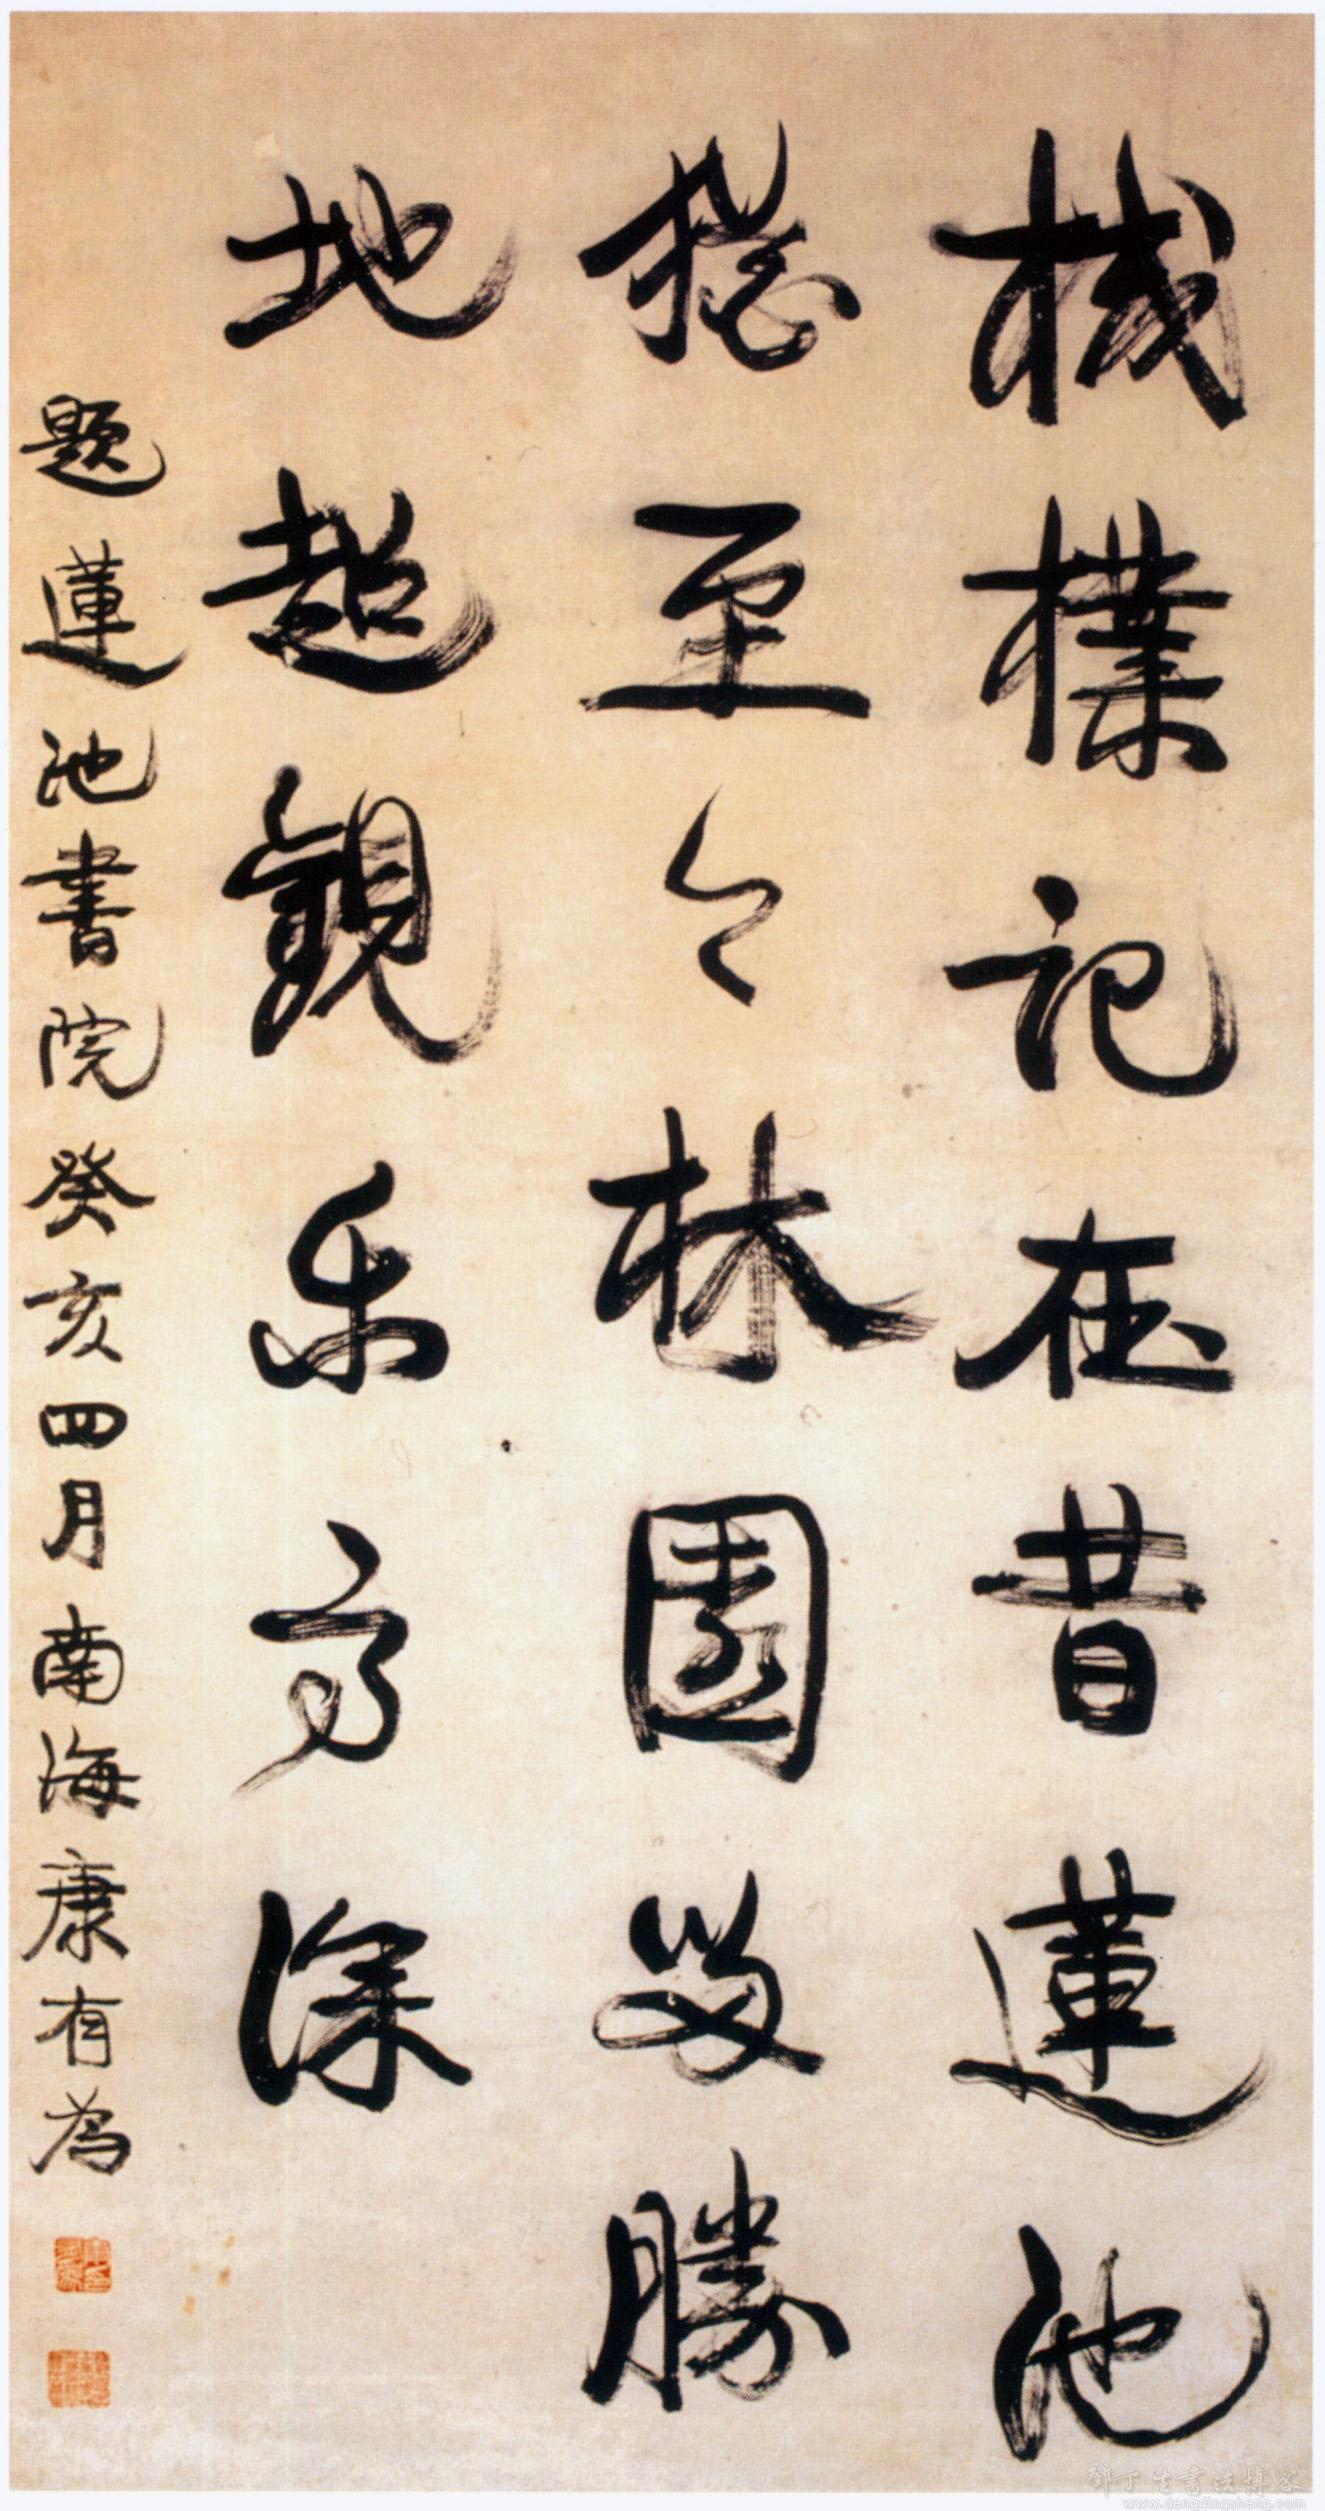 棫樸記在昔蓮池
猶至今林園留勝
地超觀樂高深
題蓮池書院癸亥四月南海康有為
鄧丁生書法博客
www.dengdingsheng.com